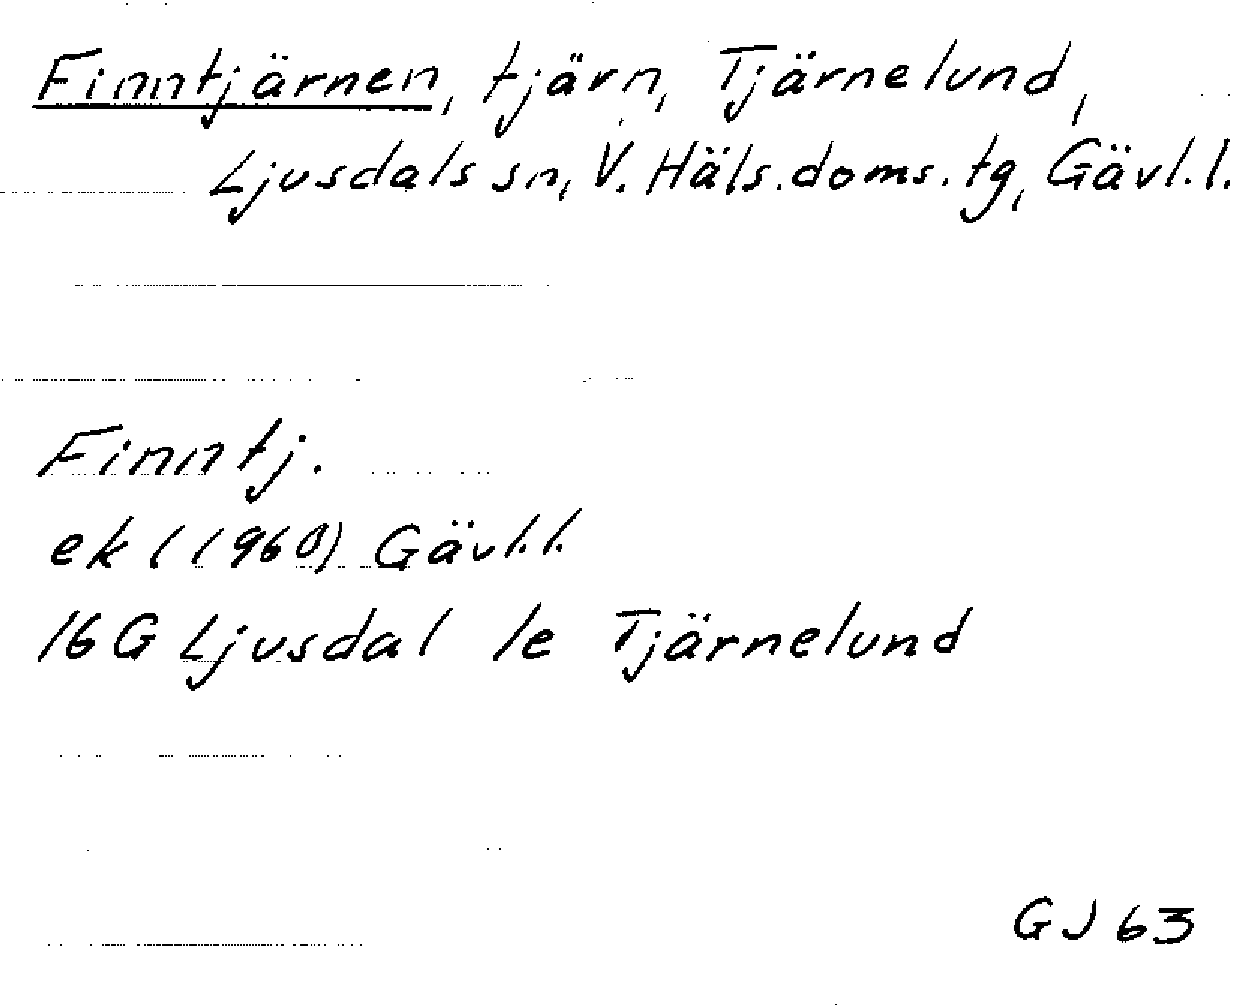 Finntjärnen, tjärn, Tjärnelund,
Ljusdals sn, V. Häls. doms. tg, Gävl. l.
Finntj.
ek (1960) Gävl. l.
16 G Ljusdal 1e Tjärnelund
GJ 63